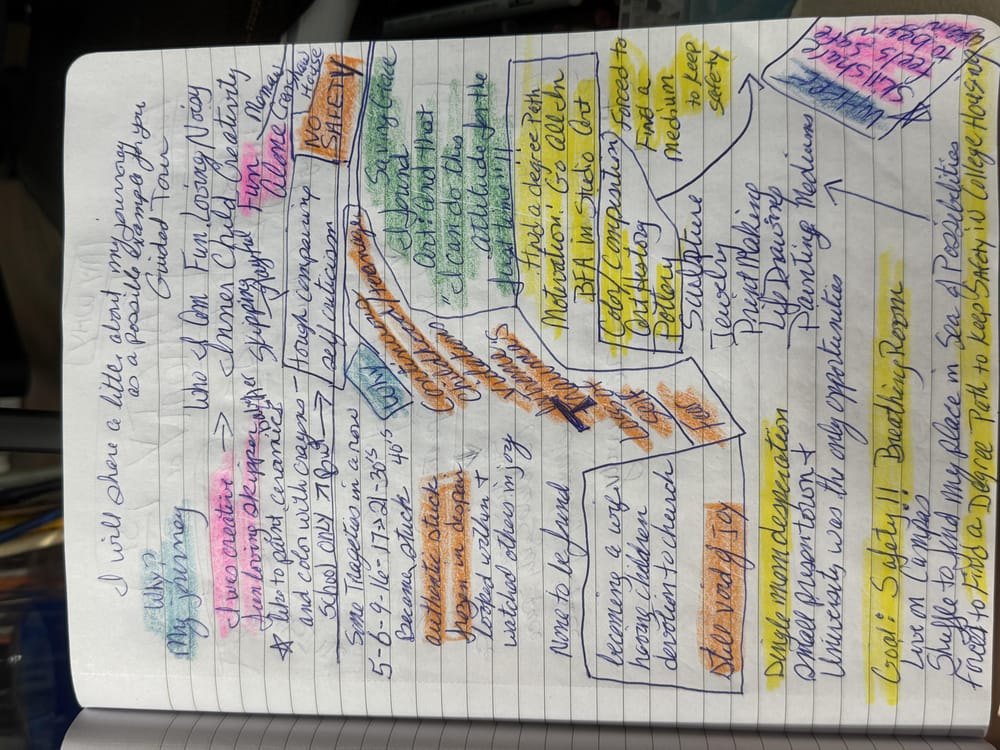 I will share a little about my journey
as a possible example for you
Guided Tour
Why?
My Journey
Who I am Fun Loving Noisy
I was creative => Inner Child Creativity
fun loving skipper skipping joyful Fun
Alone
★ Who to paint ceramics
and color with crayons - tough comparing
School only self criticism
NO
SAFETY
House
Some Tragedies in a row
5-6-9-16-17-21-30's
40's
Became stuck
authentic stuck
frozen in despair
looked within +
watched others in joy
None to be found
becoming a wife
having children
devotion to church
Still void of Joy
Why
Criminal
children
Saving Grace
I found
Art and that
"I can do this
attitude for the
Find a degree Path
Motivation: Go All In
BFA in Studio Art
Color/composition
Art History
Pottery
Sculpture
Jewelry
Print Making
Life Drawing
Painting Mediums
forced to
Find a
medium
to keep
safety
Single mom desperation
Small prison town +
University was the only opportunities
Skillshare
feels safe
to begin
again
Goal: Safety!! Breathing Room
Live on Campus
Shuffle to find my place in Sea of Possibilities
Forced to Find a Degree Path to keep SAFETY in College Housing